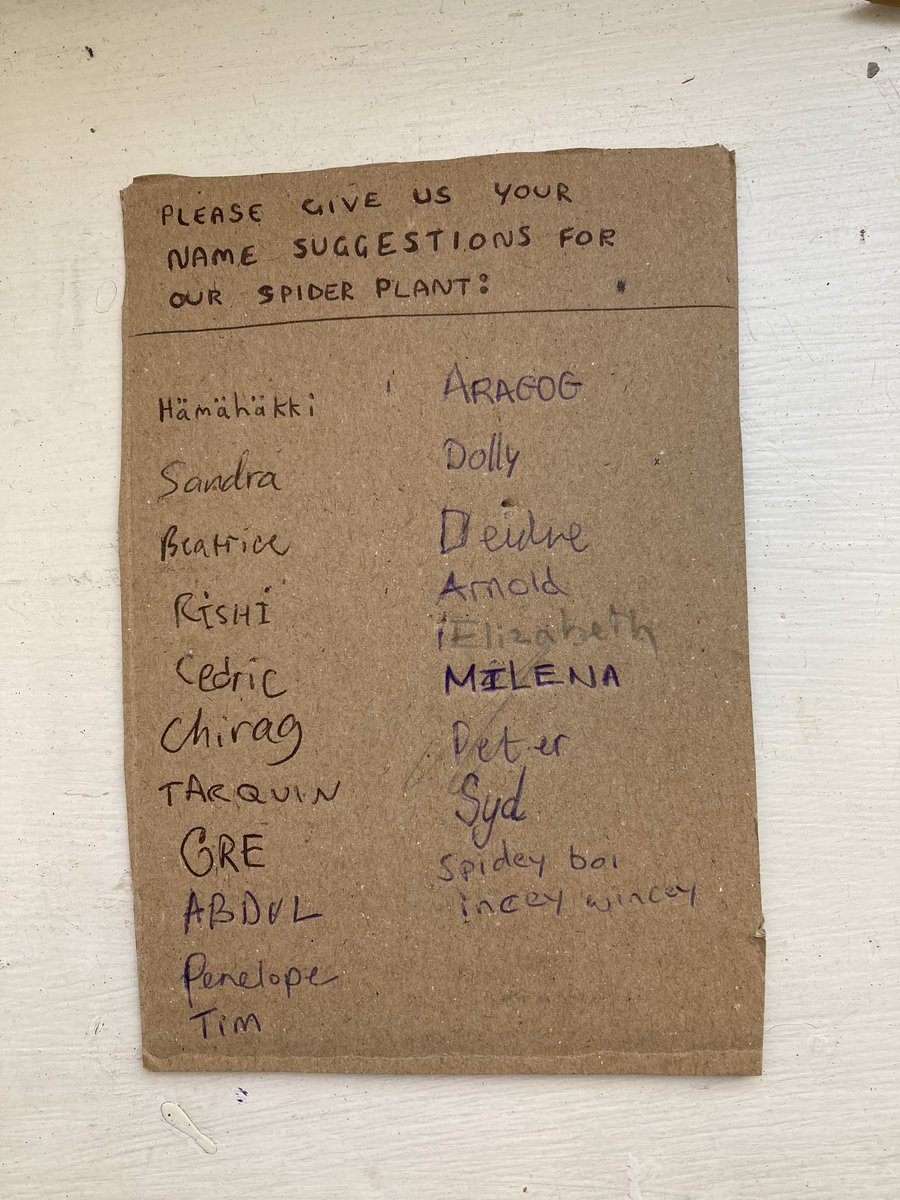 PLEASE GIVE US YOUR
NAME SUGGESTIONS FOR
OUR SPIDER PLANT:
Hämähäkki
Sandra
Beatrice
RiSHi
Cedric
Chirag
TARQUIN
GRE
ABDUL
Penelope
Tim
ARAGOG
Dolly
Deidre
Arnold
Elizabeth
MILENA
Peter
Syd
Spidey boi
incey wincey